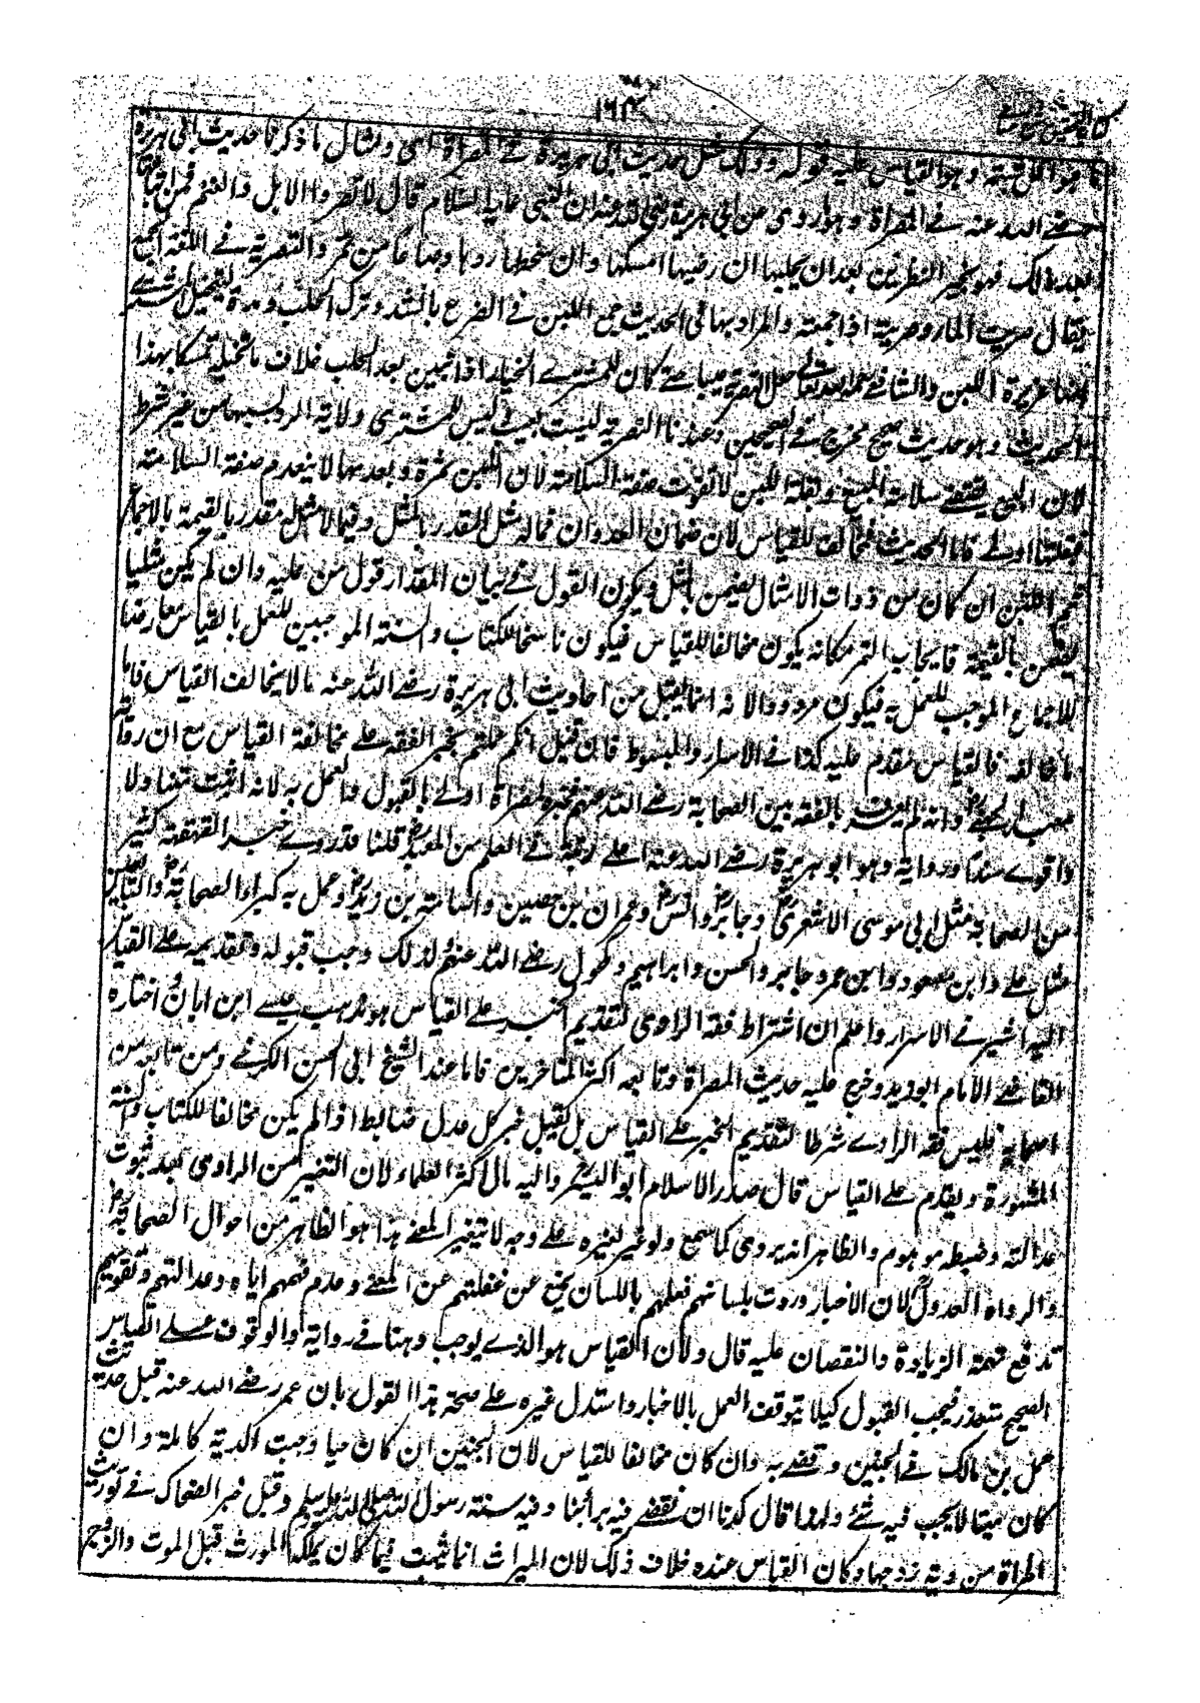 ١٦٣
كتاب التحقيق شرح حسامى
ما هو الكل فيته وهو القياس عليه قوله وذلك مثل حديث ابى هريرة فى المصراة اى ومثال ما ذكرنا حديث ابى هريرة
رضے الله عنه فے المصراة وهو ما روى عن ابى هريرة رضى الله عنه ان النبى عليه السلام قال لا تصروا الابل والغنم فمن ابتاعها
بعد ذلك فهو بخير النظرين بعد ان يحلبها ان رضيها امسكها وان سخطها ردها وصاعا من تمر والتصرية فے اللغة الجمع
يقال صريت الماء وصريته اذا جمعته والمراد بها فى الحديث جمع اللبن فے الضرع بالشد وترك الحلب مدة ليتخيل المشترے
انها غزيرة اللبن والشافعے رحمه الله تعالے جعل التصرية عيبا حتے كان للمشترے الخيار اذا تبين بعد الحلب خلاف ما تخيله تمسكا بهذا
الحديث وهو حديث صحيح مخرج فے الصحيحين وعندنا التصرية ليست بعيب ليس للمشترى ولاية الرد بسببها من غير شرط
لان البيع يقتضے سلامة المبيع وبقلة اللبن لا تفوت صفة السلامة لان اللبن ثمرة وبعدمها لا ينعدم صفة السلامة
فبقلتها اولے فاما الحديث فمخالف للقياس لان ضمان العدوان فيما له مثل مقدر بالمثل وفيما لا مثل له مقدر بالقيمة بالاجماع
ثم اللبن ان كان من ذوات الامثال يضمن بالمثل ويكون القول فے بيان المقدار قول من عليه وان لم يكن مثليا
يضمن بالقيمة فايجاب التمر مكانه يكون مخالفا للقياس فيكون ناسخا للكتاب والسنة الموجبين للعمل بالقياس معارضا
للاجماع الموجب للعمل به فيكون مردودا لانه انما يقبل من احاديث ابى هريرة رضے الله عنه ما لا يخالف القياس فاما
ما خالفه فالقياس مقدم عليه كذا فے الاسرار والمبسوط فان قيل انكم عملتم بخبر القهقهة علے مخالفة القياس مع ان رواته
معبد الجهنے وانه لم يعرف بالفقه بين الصحابة رضے الله عنهم فخبر المصراة اولے بالقبول والعمل به لانه اثبت متنا ولا
واقوے سندا ورواية وهو ابو هريرة رضے الله عنه اعلے رتبة فے العلم من المعبد قلنا قد روے خبر القهقهة كثير
من الصحابة مثل ابى موسى الاشعرى وجابر وانس وعمران بن حصين واسامة بن زيد وعمل به كبراء الصحابة والتابعين
مثل علے وابن مسعود وابن عمر وجابر والحسن وابراهيم ومكحول رضے الله عنهم فلذلك وجب قبوله وتقديمه علے القياس
اليه اشير فے الاسرار واعلم ان اشتراط فقه الراوى لتقديم الخبر علے القياس هو مذهب عيسے ابن ابان واختاره
القاضے الامام ابو زيد وخرج عليه حديث المصراة وتابعه اكثر المتاخرين فاما عند الشيخ ابى الحسن الكرخے ومن تابعه من
اصحابنا فليس فقه الراوے شرطا لتقديم الخبر علے القياس بل يقبل خبر كل عدل ضابط اذا لم يكن مخالفا للكتاب والسنة
المشهورة ويقدم علے القياس قال صدر الاسلام ابو اليسر واليه مال اكثر العلماء لان التغيير من الراوى بعد ثبوت
عدالته وضبطه موهوم والظاهر انه يروى كما سمع ولو غير لغيره علے وجه لا يتغير المعنے هذا هو الظاهر من احوال الصحابة
والرواة العدول لان الاخبار وردت بلسانهم فعلمهم باللسان يمنع عن غفلتهم عن المعنے وعدم فهمهم اياه وعدالتهم وتقويهم
تدفع تهمة الزيادة والنقصان عليه قال ولان القياس هو الذے يوجب وهنا فے روايته والوقوف علے القياس
الصحيح متعذر فيجب القبول كيلا يتوقف العمل بالاخبار واستدل غيره علے صحة هذا القول بان عمر رضے الله عنه قبل حديث
حمل بن مالك فے الجنين وقضے به وان كان مخالفا للقياس لان الجنين ان كان حيا وجبت الدية كاملة وان
كان ميتا لا يجب فيه شئے ولهذا قال كدنا ان نقضے فيه برائنا وفيه سنة رسول الله صلى الله عليه وسلم وقبل خبر الضحاك فے توريث
المراة من دية زوجها وكان القياس عنده خلاف ذلك لان الميراث انما يثبت فيما كان يملكه المورث قبل الموت والزوج